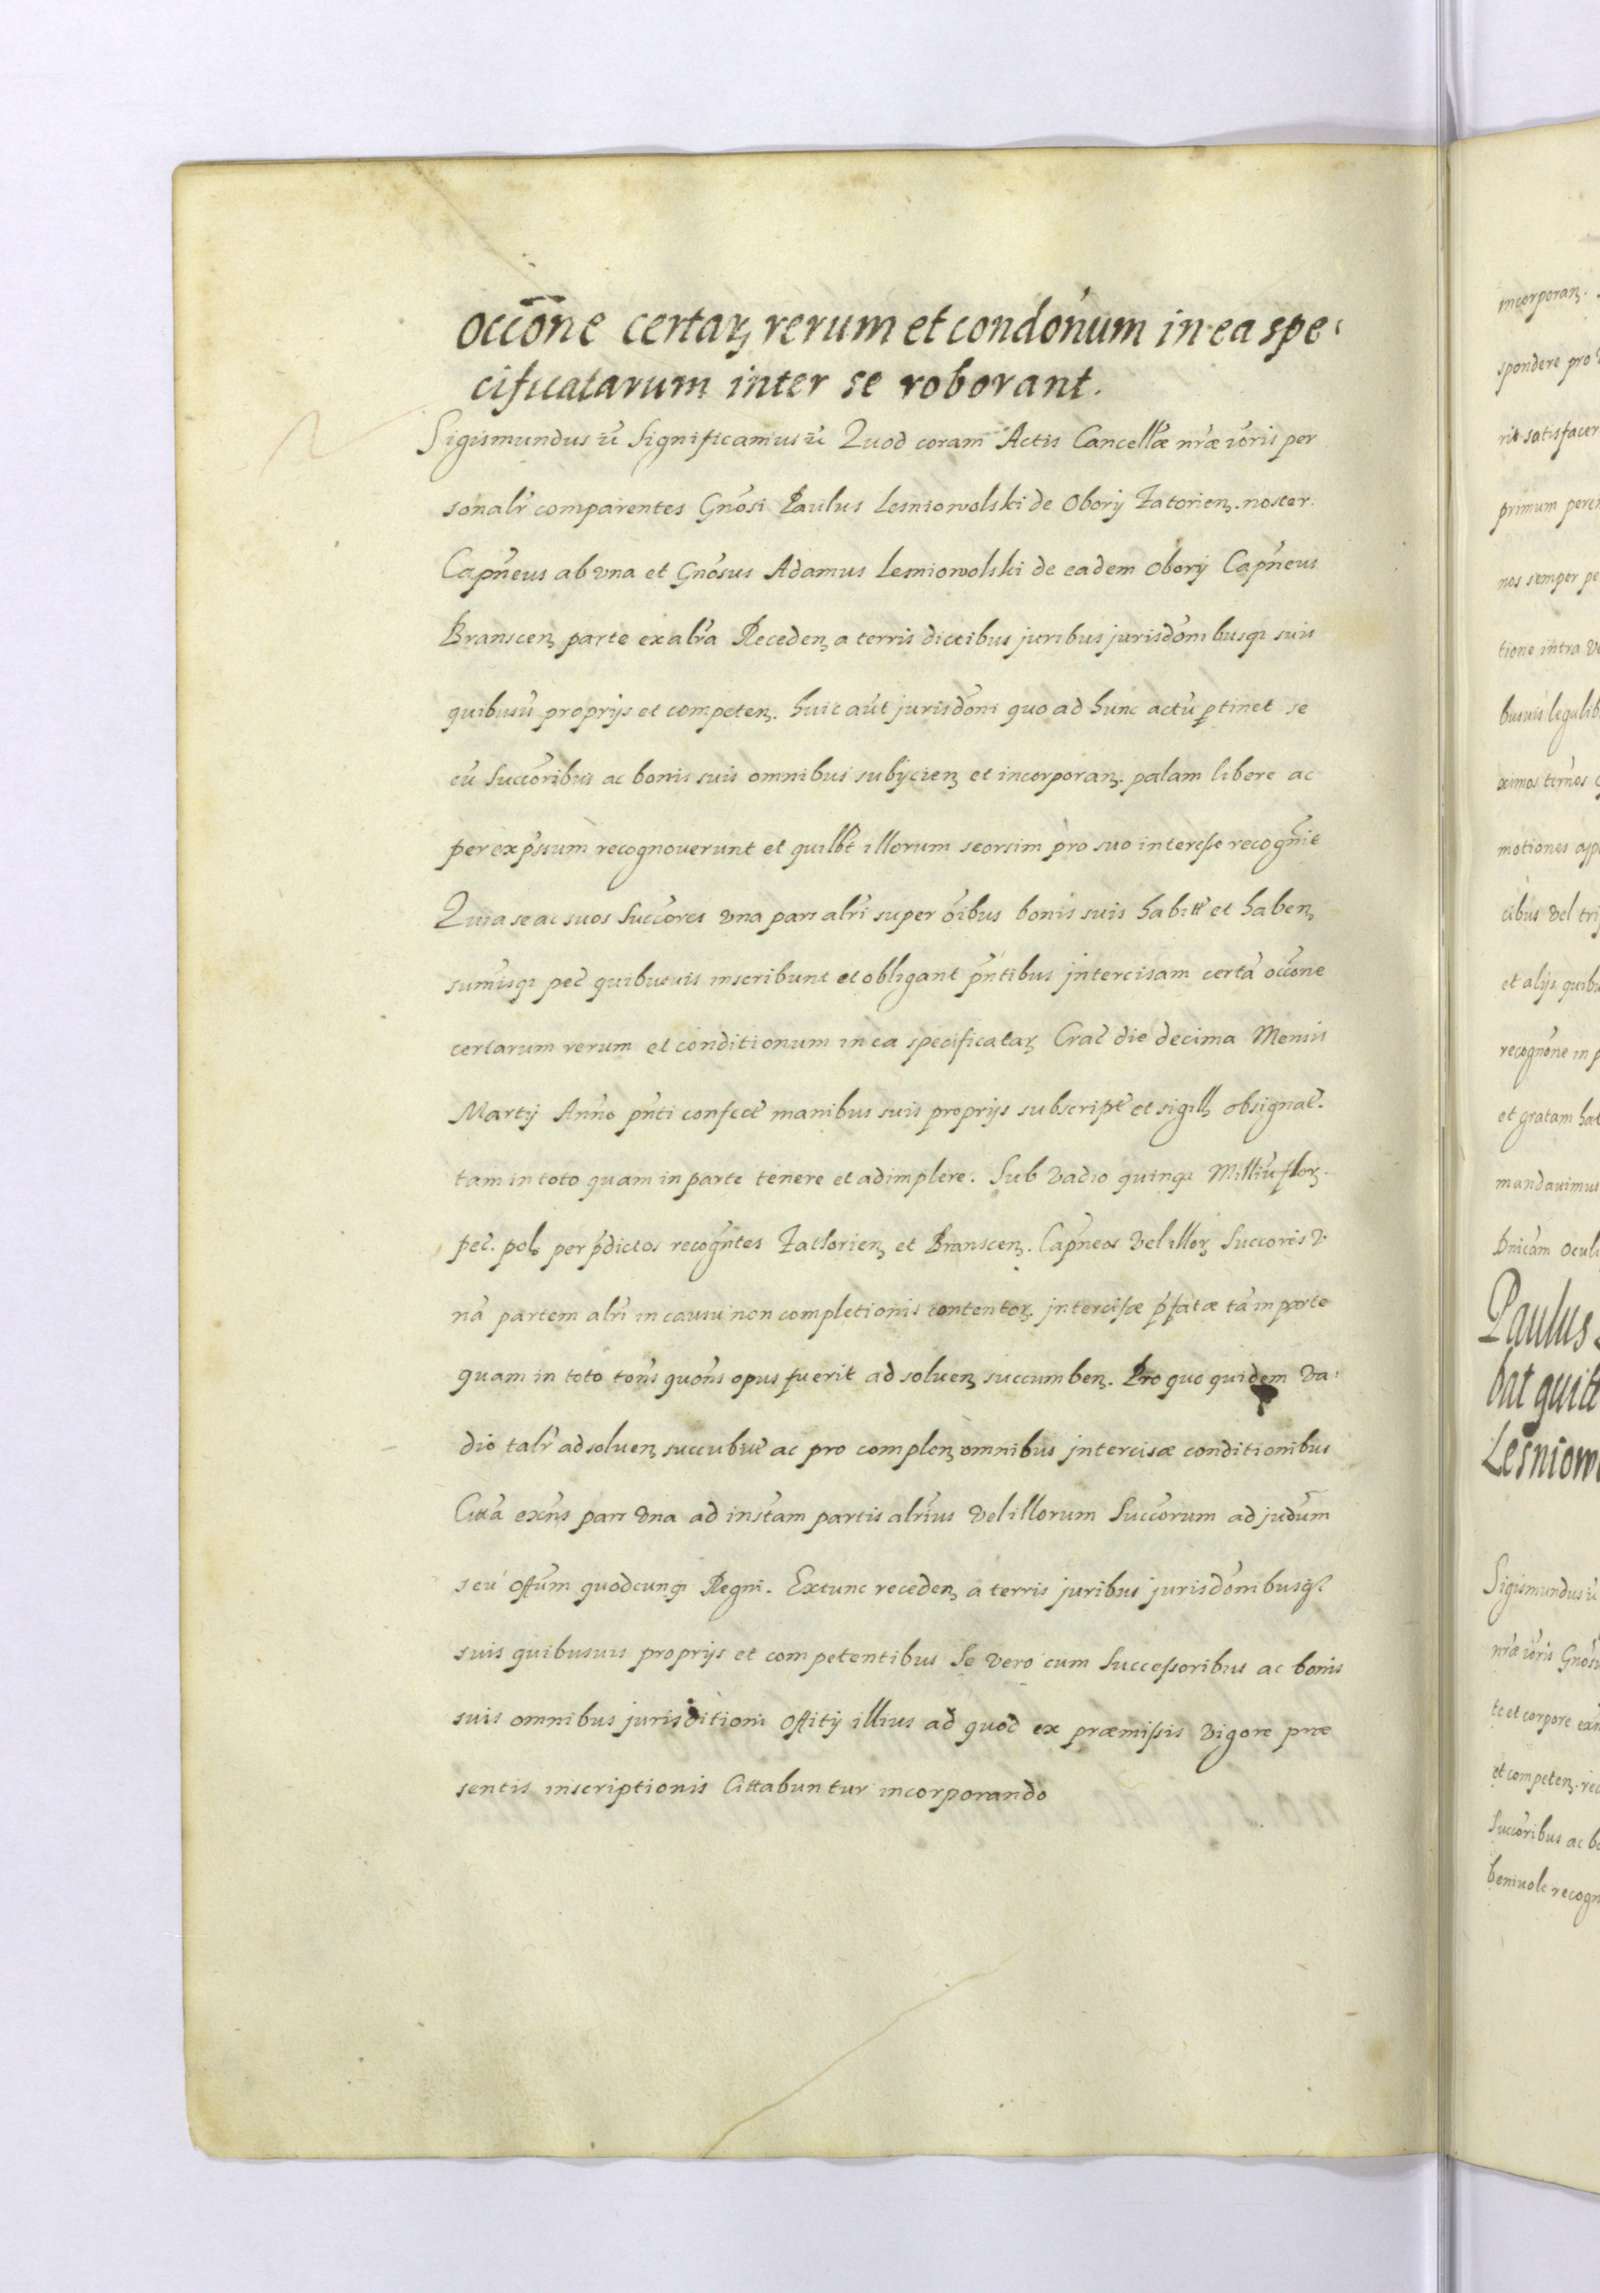 occone certaꝝ rerum et condonum in ea spe
cificatarum inter se roborant.
Sigismundus etc Significamus etc Quod coram Actis Cancellæ nræ voris per
sonalr comparentes Gnosi Paulus Lesniowolski de Obory Zatorien. noster.
Capneus ab vna et Gnosus Adamus Lesniowolski de eadem Obory Capneus
Branscen parte ex altra Receden a terris dictibus juribus jurisdomibusqȝ suis
quibusu proprijs et competen. huic aut jurisdoni quo ad hunc actu ptinet se
cu Succoribus ac bonis suis omnibus subijcien et incorporan. palam libere ac
per expssum recognouerunt et quilbt illorum seorsim pro suo interesse recognit
Quia se ac suos Succores vna pars altri super oibus bonis suis habitt et haben
sumisqȝ pec quibusuis inscribunt et obligant pntibus jntercisam certa occone
certarum rerum et conditionum in ea specificataꝝ Crac die decima Mensis
Martij Anno pnti confect manibus suis proprijs subscript et sigill obsignat.
tam in toto quam in parte tenere et adimplere. Sub vadio quinqȝ Milliu floꝝ.
pec. pol. per pdictos recogntes Zathorien et Branscen. Capneos vel illoꝝ Succores v
na partem altri in casu non completionis contentoꝝ jntercisæ pfatæ ta in parte
quam in toto tons quons opus fuerit ad soluen succumben. Pro quo quidem va
dio talr ad soluen succubit ac pro complen omnibus jntercisæ conditionibus
Citta exns pars vna ad instam partis altrius vel illorum Succorum ad judum
seu offum quodcunqȝ Regni. Extunc receden a terris juribus jurisdomibusqȝ
suis quibusuis proprijs et competentibus Se vero cum Successoribus ac bonis
suis omnibus jurisditioni offitij illius ad quod ex præmissis vigore præ
sentis inscriptionis Cittabuntur incorporando
incorporan.
spondere pro
rit satisfacer
primum perem
nos semper pe
tione intra
busuis legalib
ximos ternos
motiones app
cibus vel tri
et alijs quibu
recognone in p
et gratam hab
mandauimus
Dnicam Oculi
Paulus
bat quitt
Lesniow
Sigismundus
nræ voris Gnosu
te et corpore
et competen. rec
Succoribus ac bo
beniuole recogn